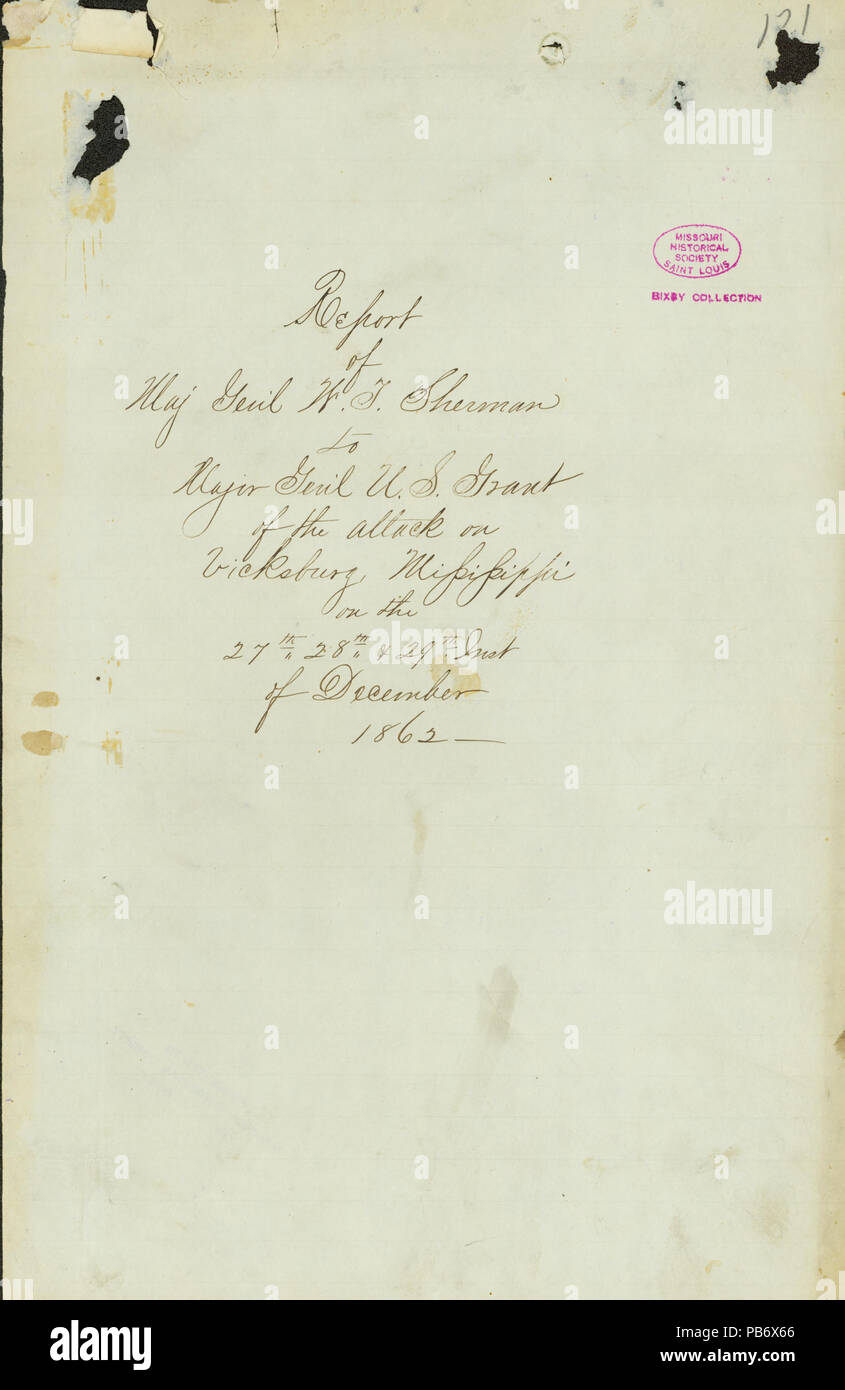 121
MISSOURI
HISTORICAL
SOCIETY
SAINT LOUIS
BIXBY COLLECTION
Report
of
Maj Genl W. T. Sherman
to
Major Genl U. S. Grant
of the attack on
Vicksburg, Mississippi
on the
27th 28th & 29th Inst
of December
1862—
alamy
alamy
alamy
alamy
alamy
alamy
alamy
alamy
Image ID: PB6X66
www.alamy.com